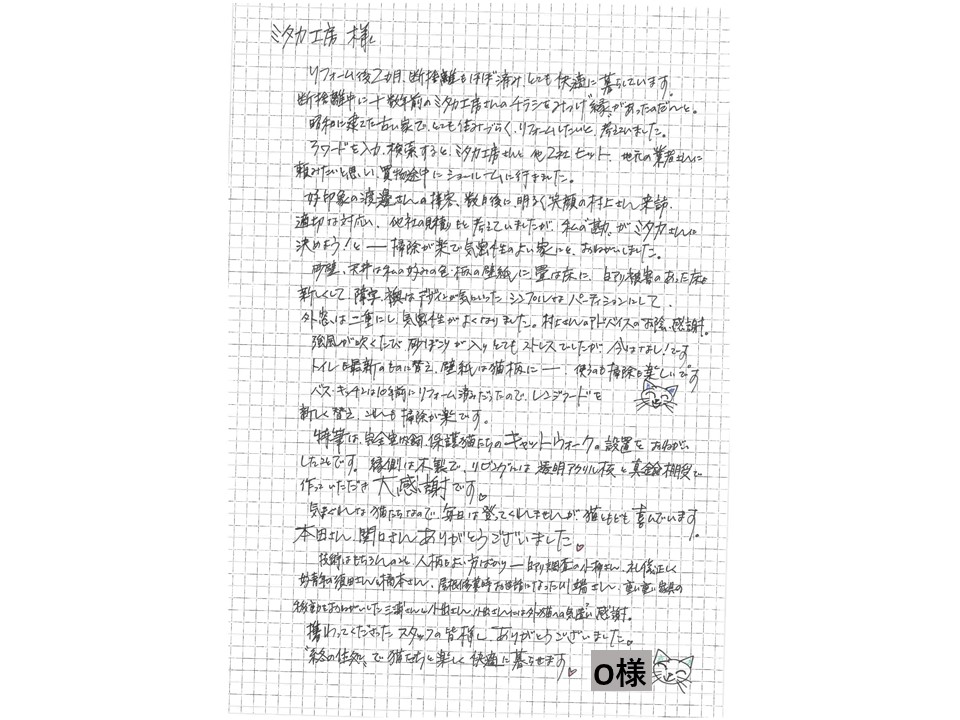 ミタカ工房 様
リフォーム後2カ月、断捨離もほぼ済み、とても快適に暮らしています。
断捨離中に十数年前のミタカ工房さんのチラシをみつけ“縁”があったのだ〜と。
昭和に建てた古い家で、とても住みづらく、リフォームしたいと、考えていました。
3ワードを入力、検索すると、ミタカ工房さんと他2社ヒット、地元の業者さんに
頼みたいと思い、買物途中にショールームに行きました。
好印象の渡邉さんの接客、数日後に、明るく笑顔の村上さん来訪、
適切な対応、他社の見積りもと考えていましたが、私の“勘”がミタカさんに
決めよう！と ― 掃除が楽で気密性のよい家にと、おねがいしました。
天井は私の好みの色・柄の壁紙に、畳は床に、白アリ被害のあった床も
新しくして、障子、襖はデザインが気にいったシンプルなパーティションにして、
外窓は二重にし、気密性がよくなりました。村上さんのアドバイスのお陰、感謝。
強風が吹くたび砂ぼこりが入りとてもストレスでしたが、今はなし！です
トイレも最新のものに替え、壁紙は猫柄に ― 、使うのも掃除も楽しいです
バス・キッチンは10年前にリフォーム済みだったので、レンジフードを
新しく替え、これも掃除が楽です。
特筆は、完全室内飼、保護猫たちのキャットウォーク。設置をおねがい
したことです。縁側は木製で、リビングには透明アクリル板と真鍮棚受で
作っていただき 大感謝です♡
気まぐれな猫たちなので、毎日は登ってくれませんが、猫ともども喜んでいます。
本田さん、関口さんありがとうございました♡
技術はもちろんのこと、人柄もよい方ばかり ― 白アリ調査の小柳さん、礼儀正しく
好青年の須田さん＆橋本さん、屋根作業時お世話になった川端さん、重い重い家具の
移動をおねがいした三浦さんと小田さん、小田さんには外猫への気遣い感謝。
携わってくださったスタッフの皆様へ、ありがとうございました。
“終の住処”で猫たちと楽しく快適に暮らせます♡
O様